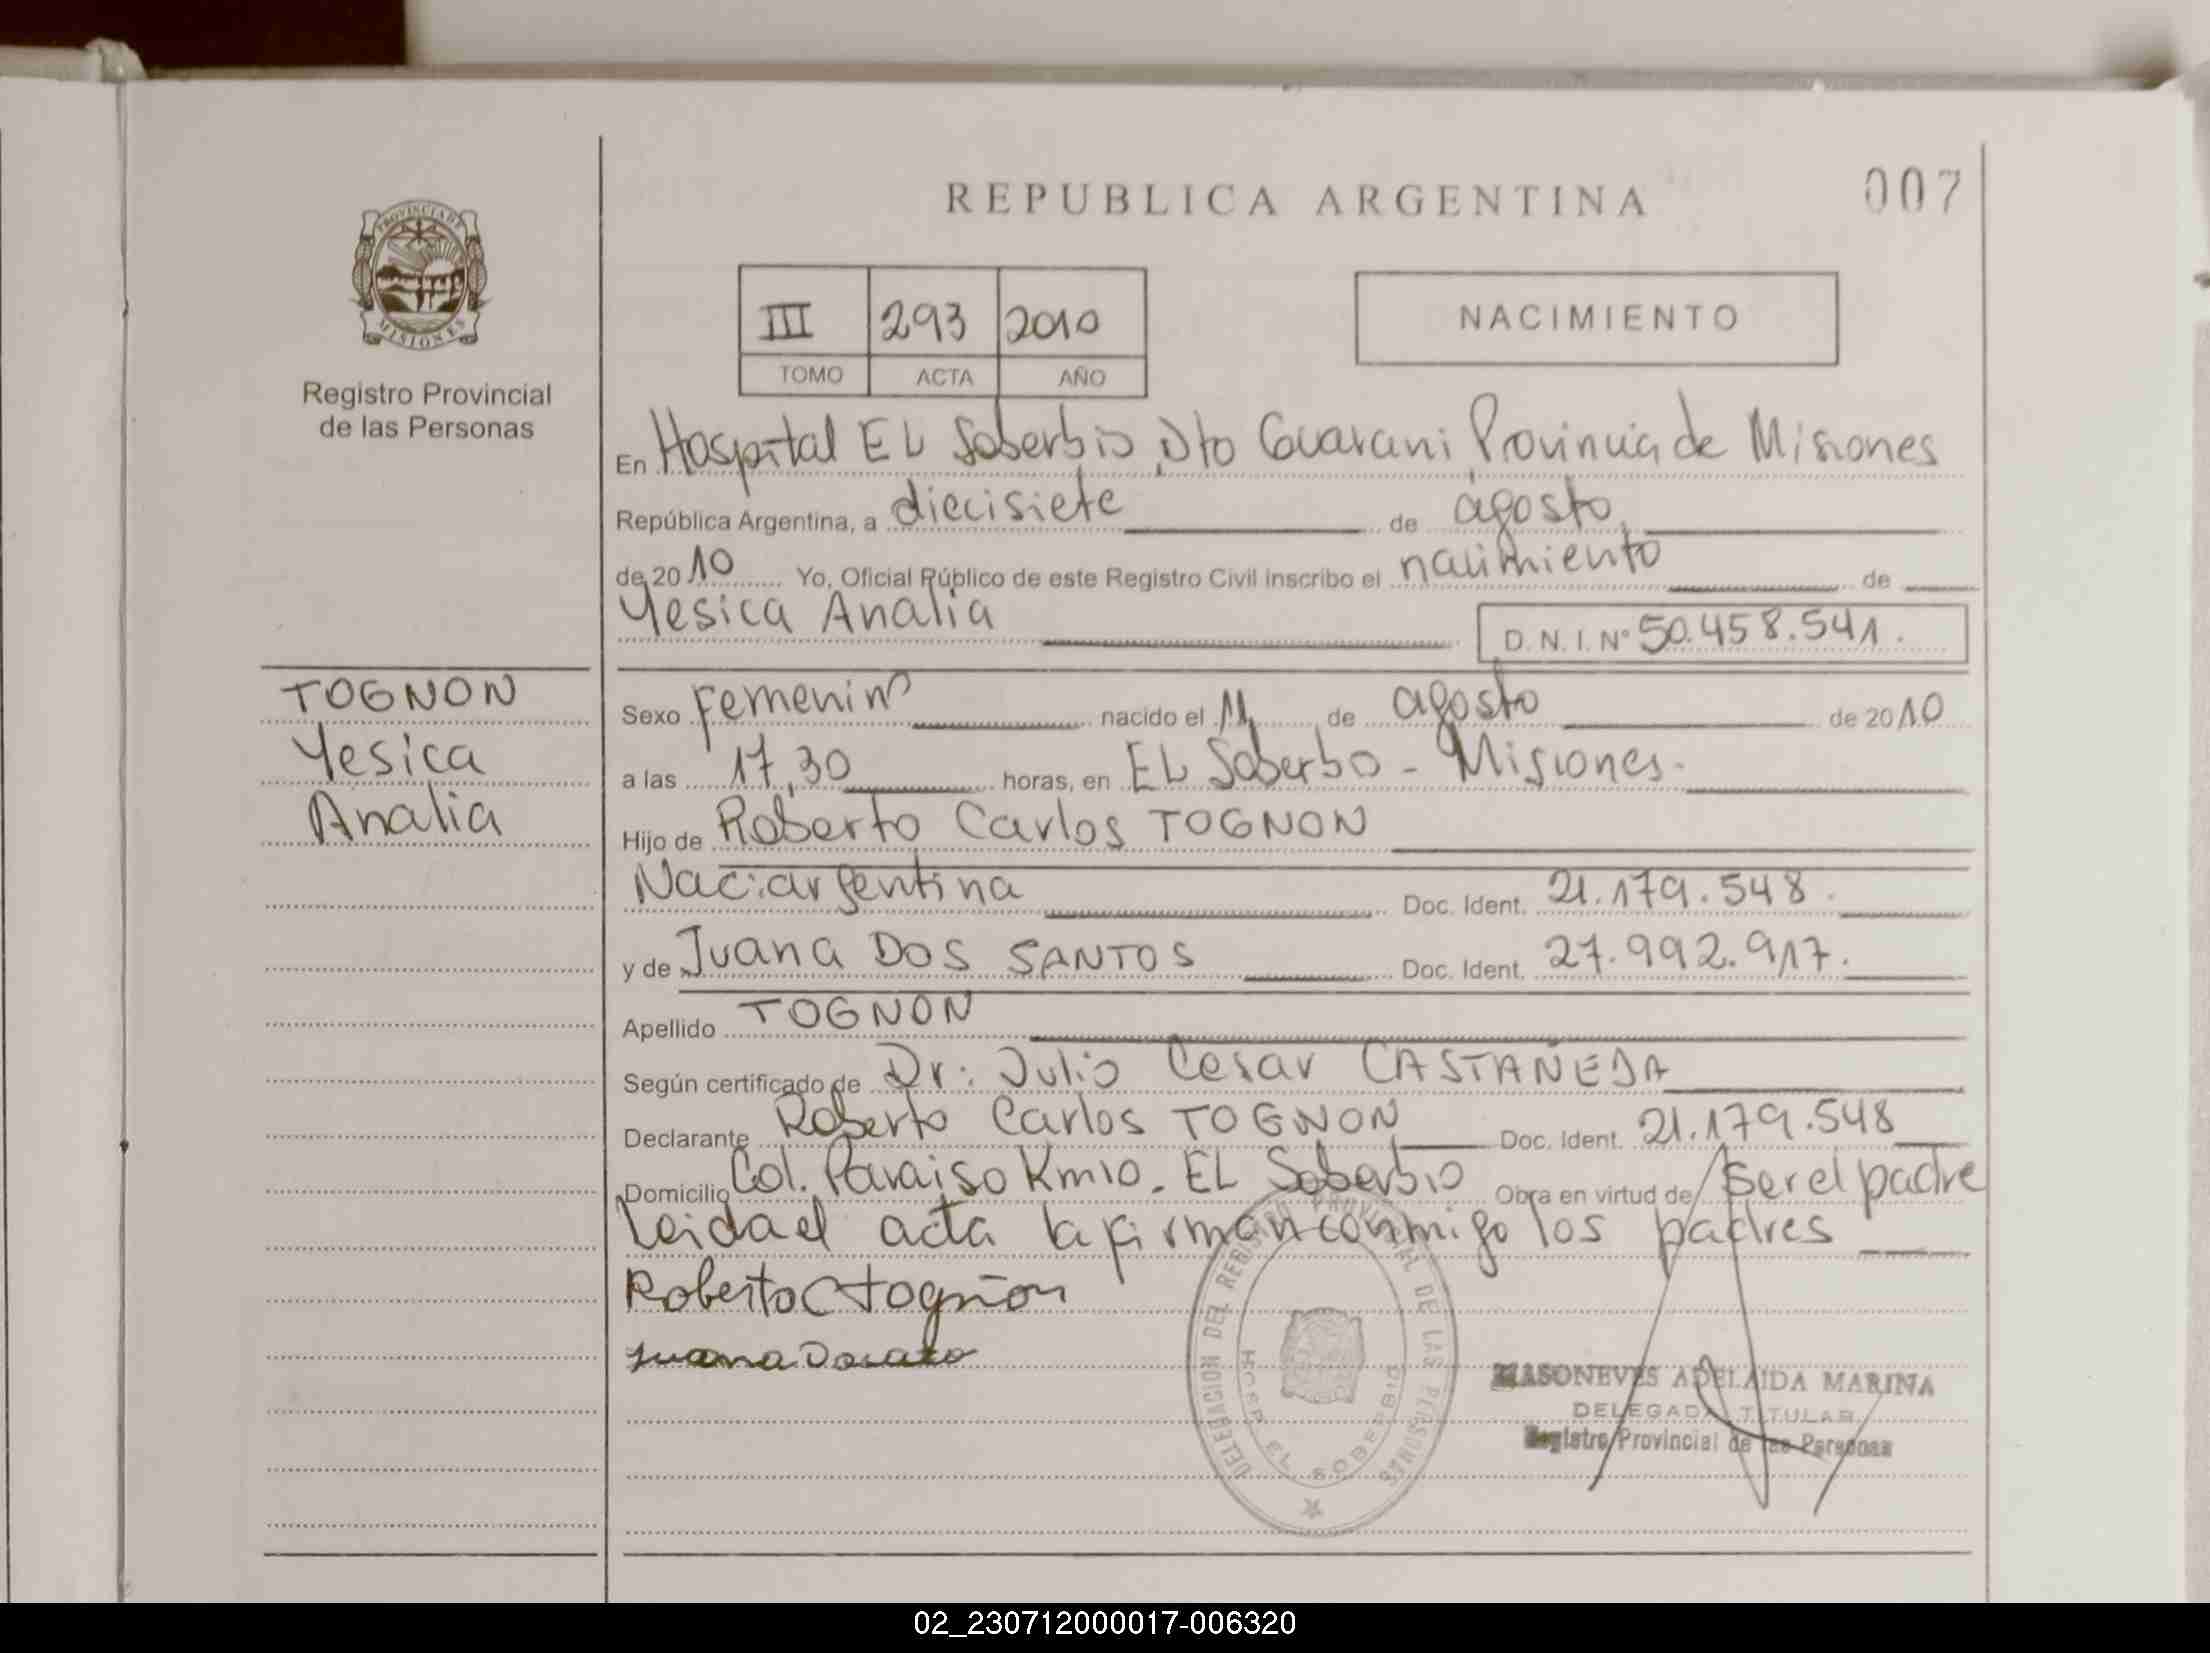 REPUBLICA ARGENTINA
007
PROVINCIA DE
MISIONES
Registro Provincial
de las Personas
III 293 2010
TOMO ACTA AÑO
NACIMIENTO
En Hospital EL Soberbio, Dto Guarani Provincia de Misiones
República Argentina, a diecisiete de agosto,
de 2010 Yo, Oficial Público de este Registro Civil inscribo el nacimiento de
Yesica Analia D.N.I. Nº 50.458.541.
TOGNON
Yesica
Analia
Sexo Femenino nacido el 11 de agosto de 2010
a las 17,30 horas, en EL Soberbo - Misiones.
Hijo de Roberto Carlos TOGNON
Naci:argentina Doc. Ident. 21.179.548.
y de Juana DOS SANTOS Doc. Ident. 27.992.917.
Apellido TOGNON
Según certificado de Dr: Julio Cesar CASTAÑEDA
Declarante Roberto Carlos TOGNON Doc. Ident. 21.179.548
Domicilio Col. Paraiso Km10. EL Soberbio Obra en virtud de ser el padre
Leida el acta la firman conmigo los padres
Roberto C Togñon
Juana
DELEGACION DEL REGISTRO PROVINCIAL DE LAS PERSONAS
HOSP. EL SOBERBIO
MASONEVES ADELAIDA MARINA
DELEGADA TITULAR
Registro Provincial de las Personas
02_230712000017-006320